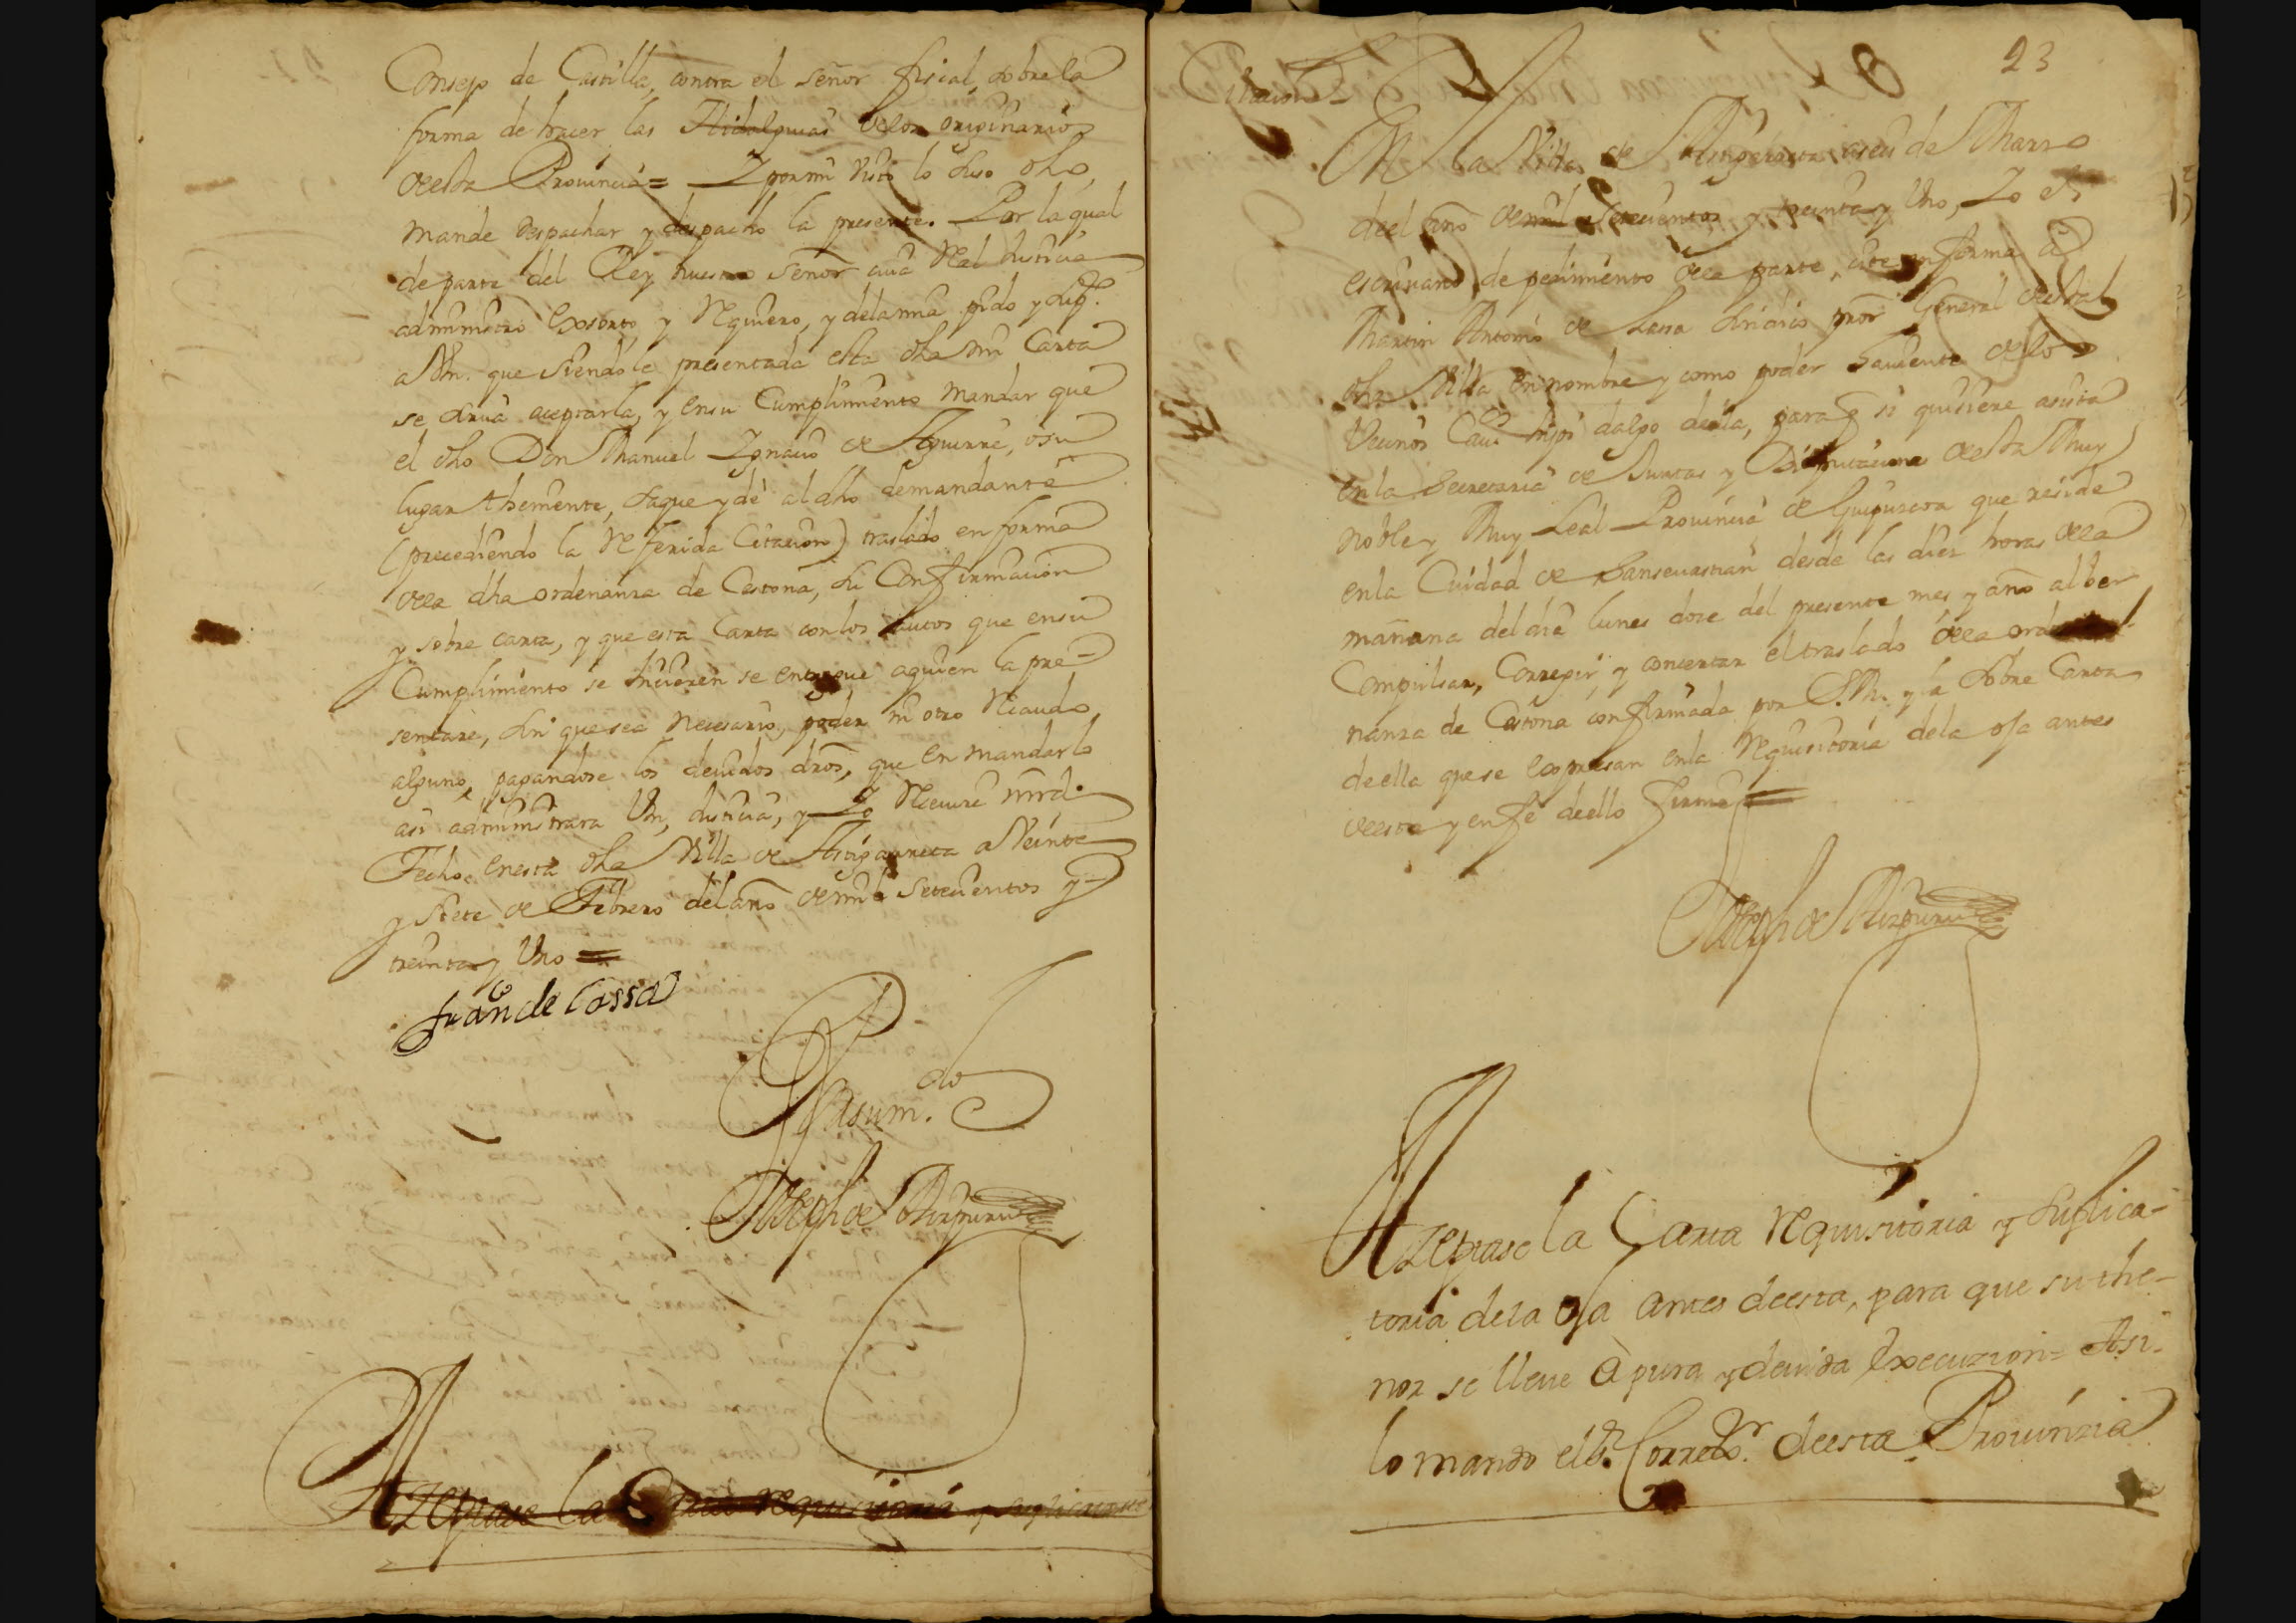 Consejo de Castilla, contra el señor fiscal, sobre la
forma de hacer las Hidalguias de los originarios
de esta Provincia = Y por mi visto lo suso dho,
mande despachar y despacho la presente. Por la qual
de parte del Rey nuestro señor cuia Real Justicia
administro exsorto, y Requiero, y dela mia pido y sup.co
a Vm. que siendole presentada esta dha mi Carta
se sirva aceptarla, y en su Cumplimiento mandar que
el dho Don Manuel Ygnacio de Aguirre, o su
lugar theniente, saque y dé al dho demandante
(precediendo la Referida Citacion) traslado en forma
de la dha ordenanza de Cestona, su Confirmacion
y sobre carta, y que esta Carta con los autos que en su
Cumplimiento se hicieren se entregue a quien la pre-
sentare, sin que sea necesario, poder ni otro Recaudo
alguno, pagandose los devidos dros, que en mandarlo
asi administrara Vm, Justicia, y Yo Recivire mrd.
Fecho en esta dha Villa de Astigarreta a Veinte
y siete de Febrero del año de mil setecientos y
treinta y Uno =
Juan de Cassa
Por su m.do
Joseph de Aizpuru
Azeptase la Carta requisitoria y suplicatoria
23
Citacion
En la Villa de a seis de Marzo
de el año de mil setecientos y treinta y Uno, Yo el
escrivano de pedimento de la parte, cite en forma a
Martin Antonio de Lasa Sindico pror General de esta
dha Villa en nombre y como poder haviente de los
Vecinos Cav.os hijos dalgo de ella, para q si quisiere asista
en la Secretaria de Juntas y Diputaciones de esta Muy
noble y Muy Leal Provincia de Guipuzcoa que reside
en la Ciudad de Sansevastian desde las diez horas de la
mañana del dia lunes doze del presente mes y año al ber
Compulsar, Corregir y concertar el traslado de la orde-
nanza de Cestona confirmada por S.M. y la sobre Carta
de ella que se expresan en la Requisitoria dela oja antes
de esta y en fe de ello firme =
Joseph de Aizpuru
Azeptase la Carta requisitoria y suplica-
toria dela oja antes deesta, para que su the-
nor se lleve à pura y devida Execuzion = Asi
lo mando el S.r Correg.or deesta Provinzia